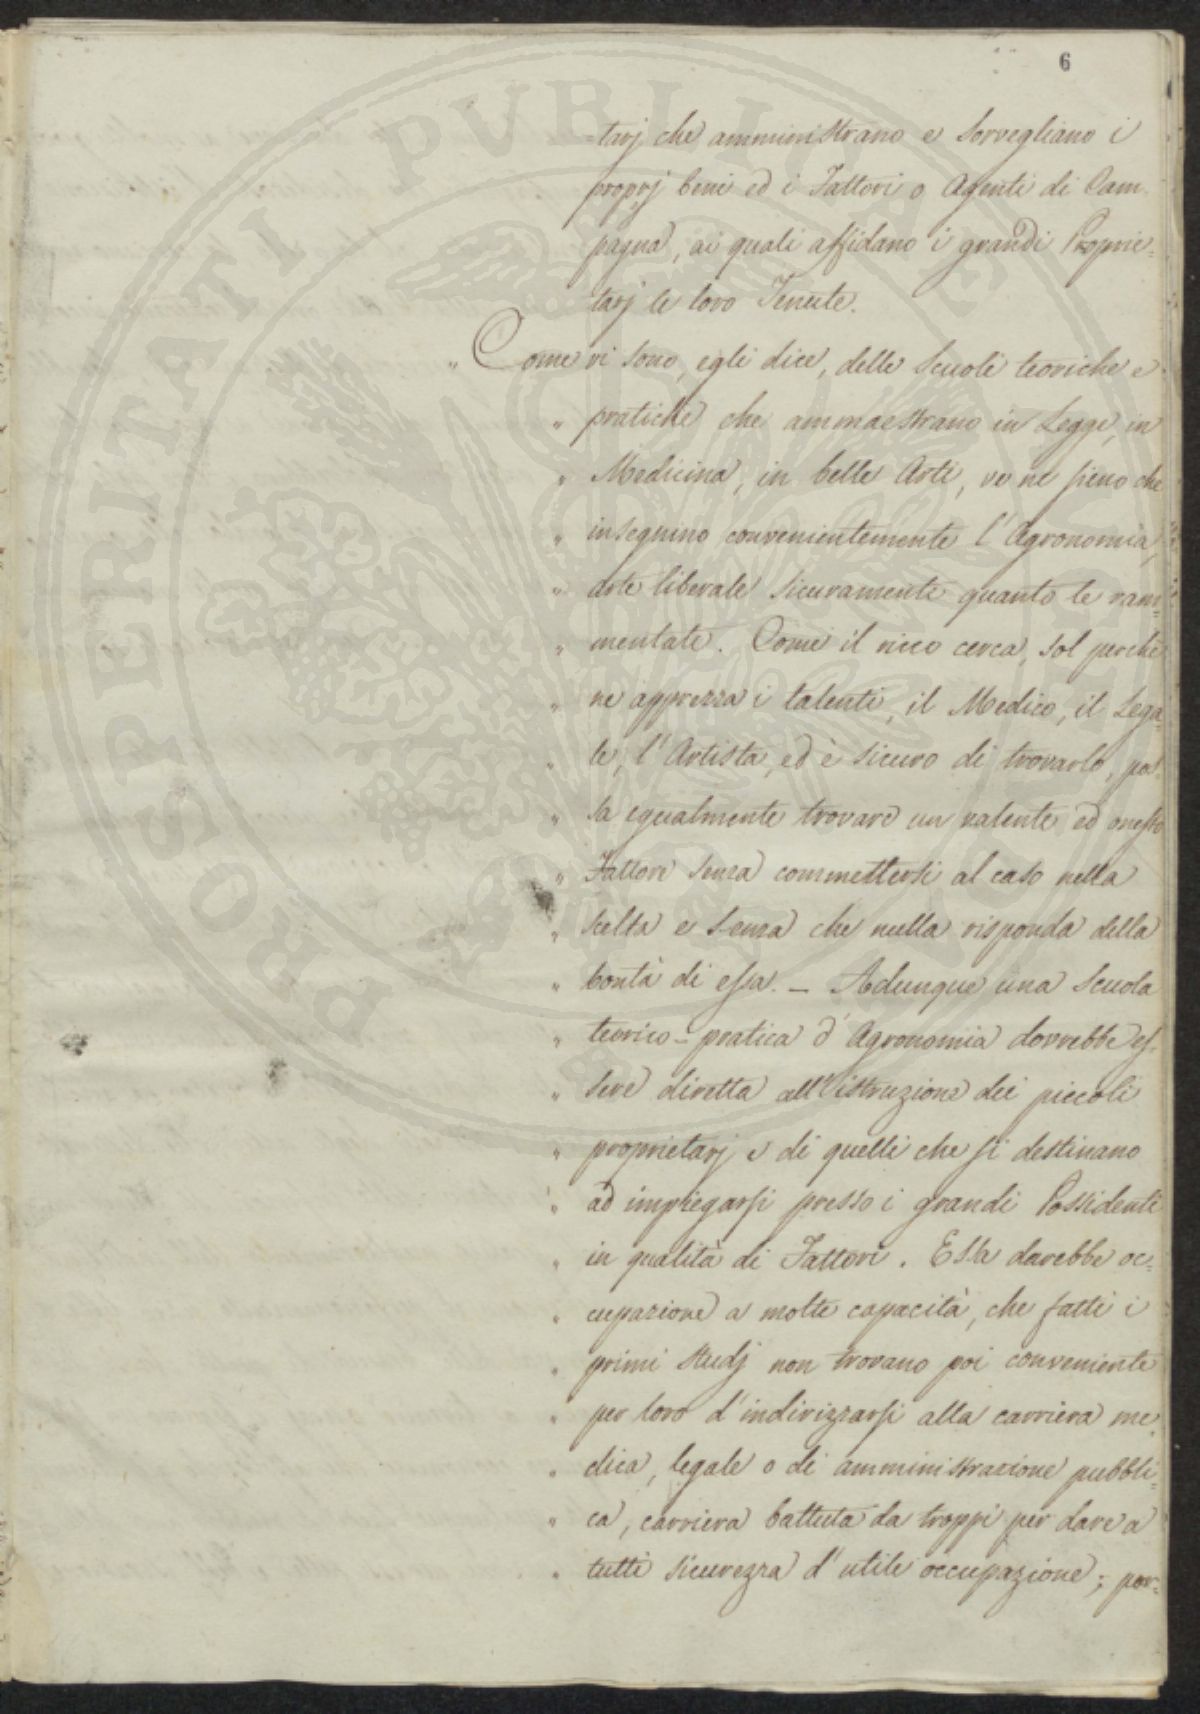 6
-tarj che amministrano e sorvegliano i
proprj beni ed i Fattori o Agenti di Cam-
pagna, ai quali affidano i grandi Proprie-
tarj le loro Tenute.
" Come vi sono, egli dice, delle Scuole teoriche e
" pratiche che ammaestrano in Legge, in
" Medicina, in belle Arti, ve ne sieno che
" insegnino convenientemente l'Agronomia,
" arte liberale sicuramente quanto le ram-
" mentate. Come il ricco cerca, sol perchè
" ne apprezza i talenti, il Medico, il Lega-
" le, l'Artista, ed è sicuro di trovarlo, pos-
" sa egualmente trovare un valente ed onesto
" Fattore senza commettersi al caso nella
" scelta e senza che nulla risponda della
" bontà di essa. – Adunque una Scuola
" teorico-pratica d'Agronomia dovrebbe es-
" sere diretta all'istruzione dei piccoli
" proprietarj e di quelli che si destinano
" ad impiegarsi presso i grandi Possidenti
" in qualità di Fattori. Essa darebbe oc-
" cupazione a molte capacità, che fatti i
" primi studj non trovano poi conveniente
" per loro d'indirizzarsi alla carriera me-
" dica, legale o di amministrazione pubbli-
" ca, carriera battuta da troppi per dare a
" tutti sicurezza d'utile occupazione; por-
PROSPERITATI PUBLICAE